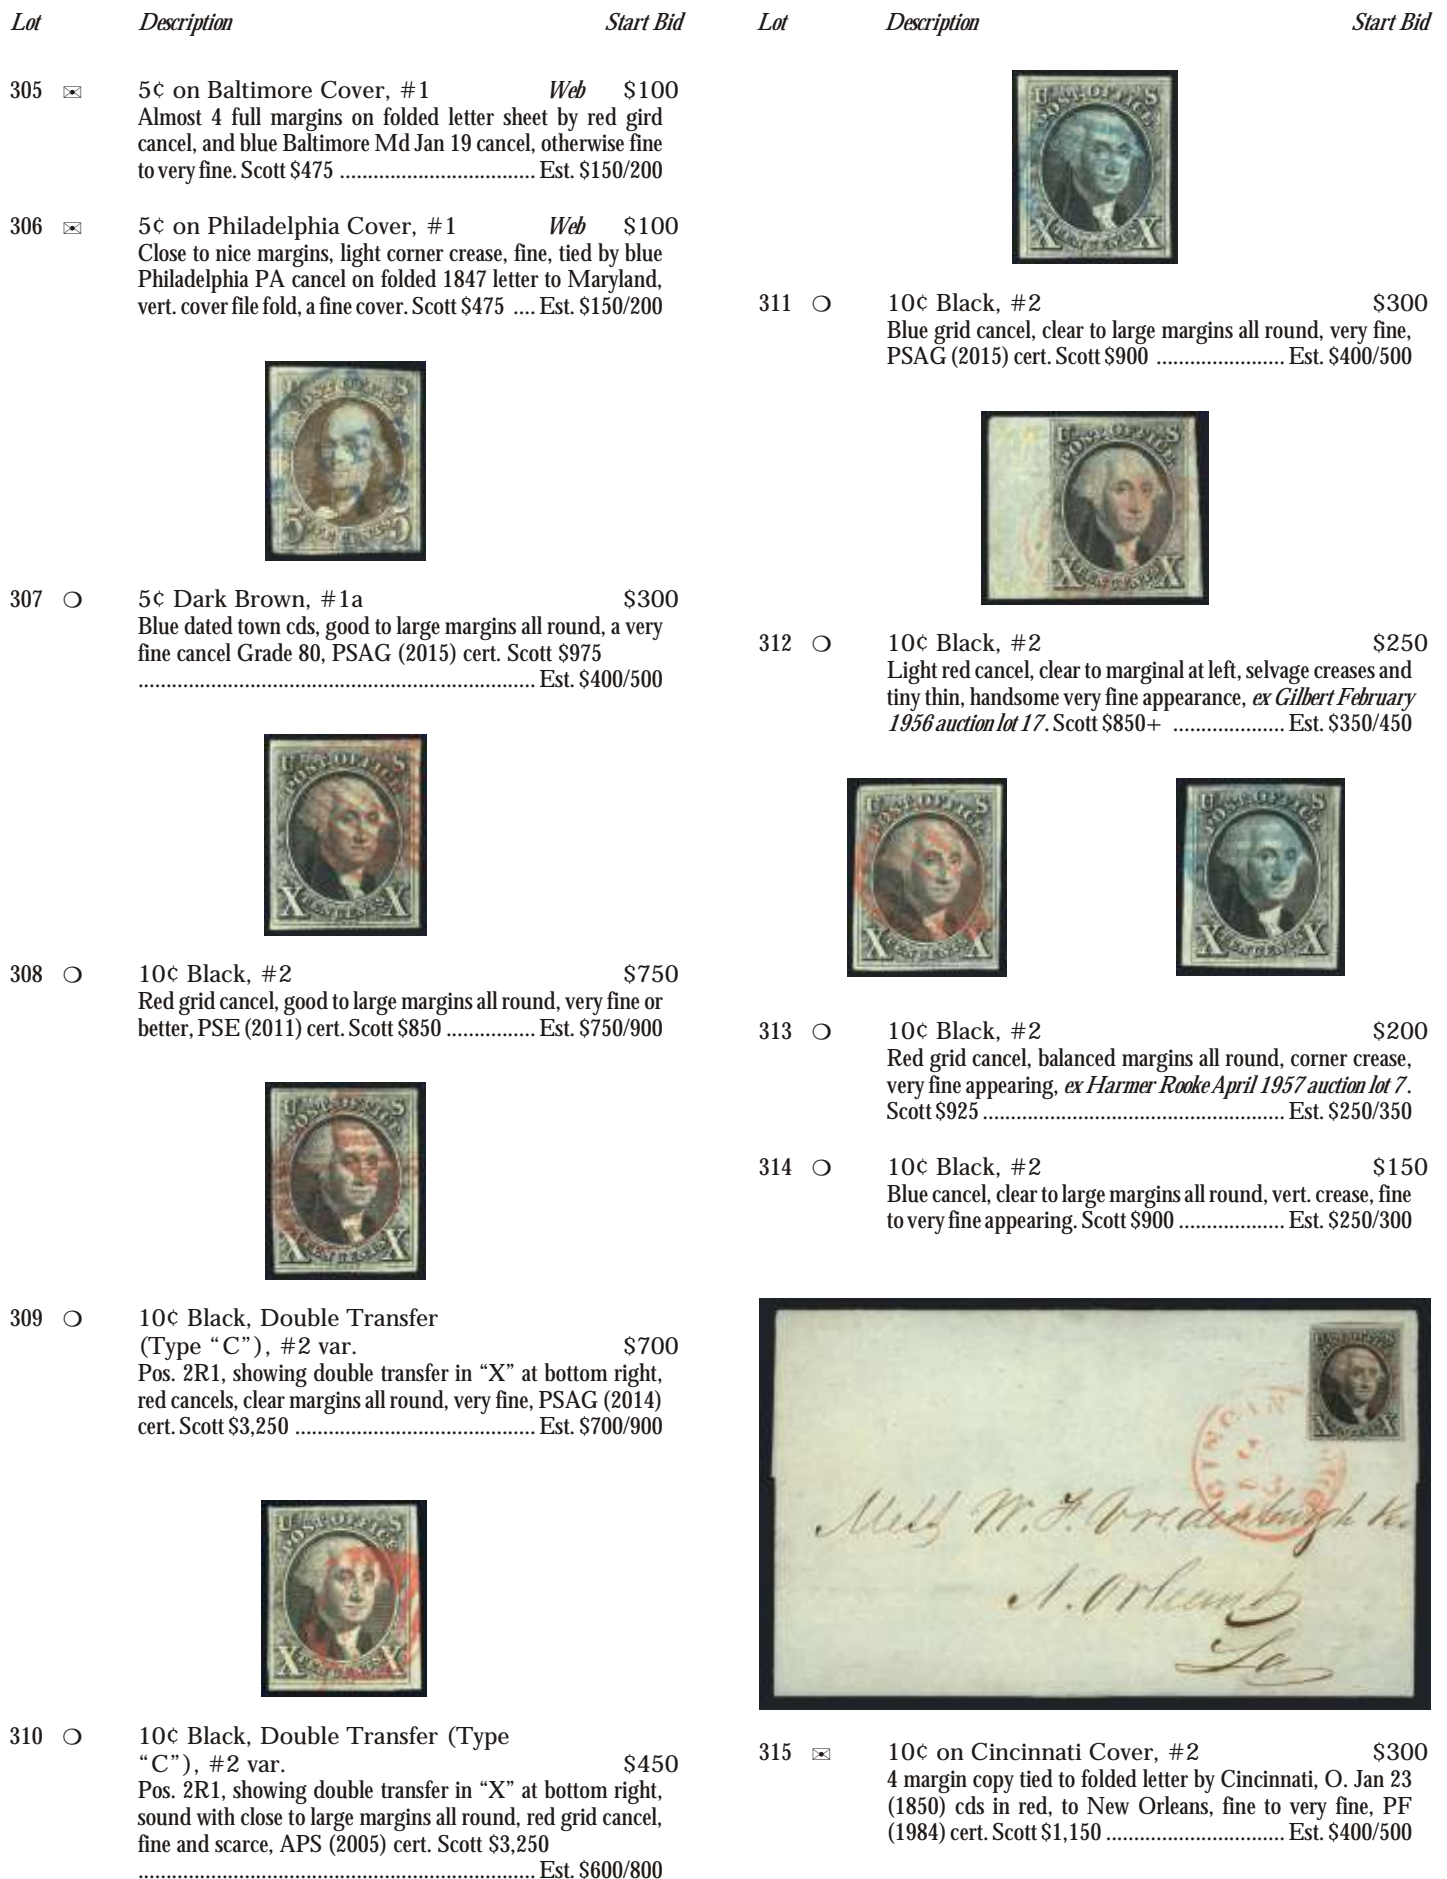 Lot Description Start Bid
305 5¢ on Baltimore Cover, #1 Web $100
Almost 4 full margins on folded letter sheet by red gird
cancel, and blue Baltimore Md Jan 19 cancel, otherwise fine
to very fine. Scott $475 ................................... Est. $150/200
306 5¢ on Philadelphia Cover, #1 Web $100
Close to nice margins, light corner crease, fine, tied by blue
Philadelphia PA cancel on folded 1847 letter to Maryland,
vert. cover file fold, a fine cover. Scott $475 .... Est. $150/200
POST OFFICE
5 CENTS 5
307 5¢ Dark Brown, #1a $300
Blue dated town cds, good to large margins all round, a very
fine cancel Grade 80, PSAG (2015) cert. Scott $975
....................................................................... Est. $400/500
U S
POST OFFICE
X TEN CENTS X
308 10¢ Black, #2 $750
Red grid cancel, good to large margins all round, very fine or
better, PSE (2011) cert. Scott $850 ................ Est. $750/900
U S
POST OFFICE
X TEN CENTS X
309 10¢ Black, Double Transfer
(Type “C”), #2 var. $700
Pos. 2R1, showing double transfer in “X” at bottom right,
red cancels, clear margins all round, very fine, PSAG (2014)
cert. Scott $3,250 ........................................... Est. $700/900
U S
POST OFFICE
X TEN CENTS X
310 10¢ Black, Double Transfer (Type
“C”), #2 var. $450
Pos. 2R1, showing double transfer in “X” at bottom right,
sound with close to large margins all round, red grid cancel,
fine and scarce, APS (2005) cert. Scott $3,250
....................................................................... Est. $600/800
Lot Description Start Bid
U S
POST OFFICE
X TEN CENTS X
311 10¢ Black, #2 $300
Blue grid cancel, clear to large margins all round, very fine,
PSAG (2015) cert. Scott $900 ....................... Est. $400/500
U S
POST OFFICE
X TEN CENTS X
312 10¢ Black, #2 $250
Light red cancel, clear to marginal at left, selvage creases and
tiny thin, handsome very fine appearance, ex Gilbert February
1956 auction lot 17. Scott $850+ .................... Est. $350/450
U S
POST OFFICE
X TEN CENTS X
U S
POST OFFICE
X TEN CENTS X
313 10¢ Black, #2 $200
Red grid cancel, balanced margins all round, corner crease,
very fine appearing, ex Harmer Rooke April 1957 auction lot 7.
Scott $925 ...................................................... Est. $250/350
314 10¢ Black, #2 $150
Blue cancel, clear to large margins all round, vert. crease, fine
to very fine appearing. Scott $900 ................... Est. $250/300
X X
CINCIN
W. F. Vredenburgh
N. Orleans
La
315 10¢ on Cincinnati Cover, #2 $300
4 margin copy tied to folded letter by Cincinnati, O. Jan 23
(1850) cds in red, to New Orleans, fine to very fine, PF
(1984) cert. Scott $1,150 ................................ Est. $400/500